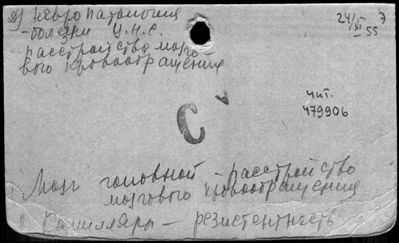 2) Невропатология
- болезни Ц.Н.С.
расстройство мозго-
вого кровообращения
24/XI 55
7
С
чит.
479906
Мозг головной - расстройство
мозгового кровообращения
Капилляры - резистентность